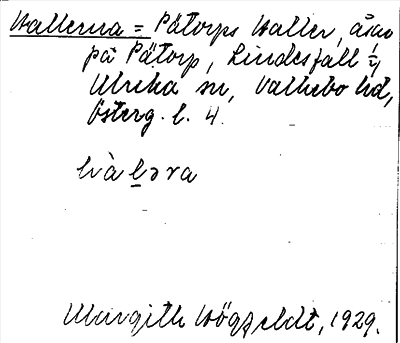 Hallerna = Pätorps Haller, åsar
på Pätorp, Lindesfall i
Ulrika sn, Valkebo hd,
Österg. l. 4.
hàlǝra
Margith Högfeldt, 1929.